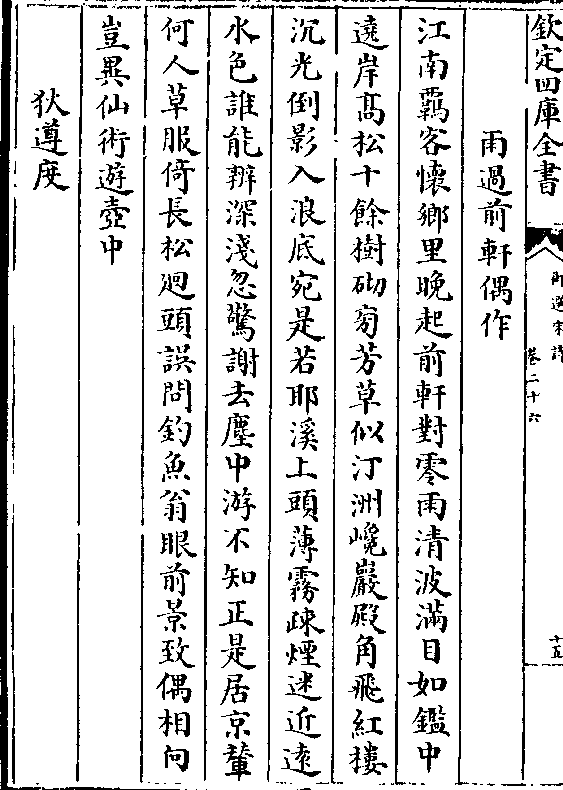 欽定四庫全書
御選宋詩
卷二十六
十五
雨過前軒偶作
江南羈客懷鄉里晚起前軒對零雨清波滿目如鑑中
遶岸髙松十餘樹砌芻芳草似汀洲巉巖殿角飛紅樓
沉光倒影入浪底宛是若耶溪上頭薄霧疎煙迷近遠
水色誰能辨深淺忽驚謝去塵中游不知正是居京輦
何人草服倚長松廻頭誤問釣魚翁眼前景致偶相向
豈異仙術遊壺中
狄遵度